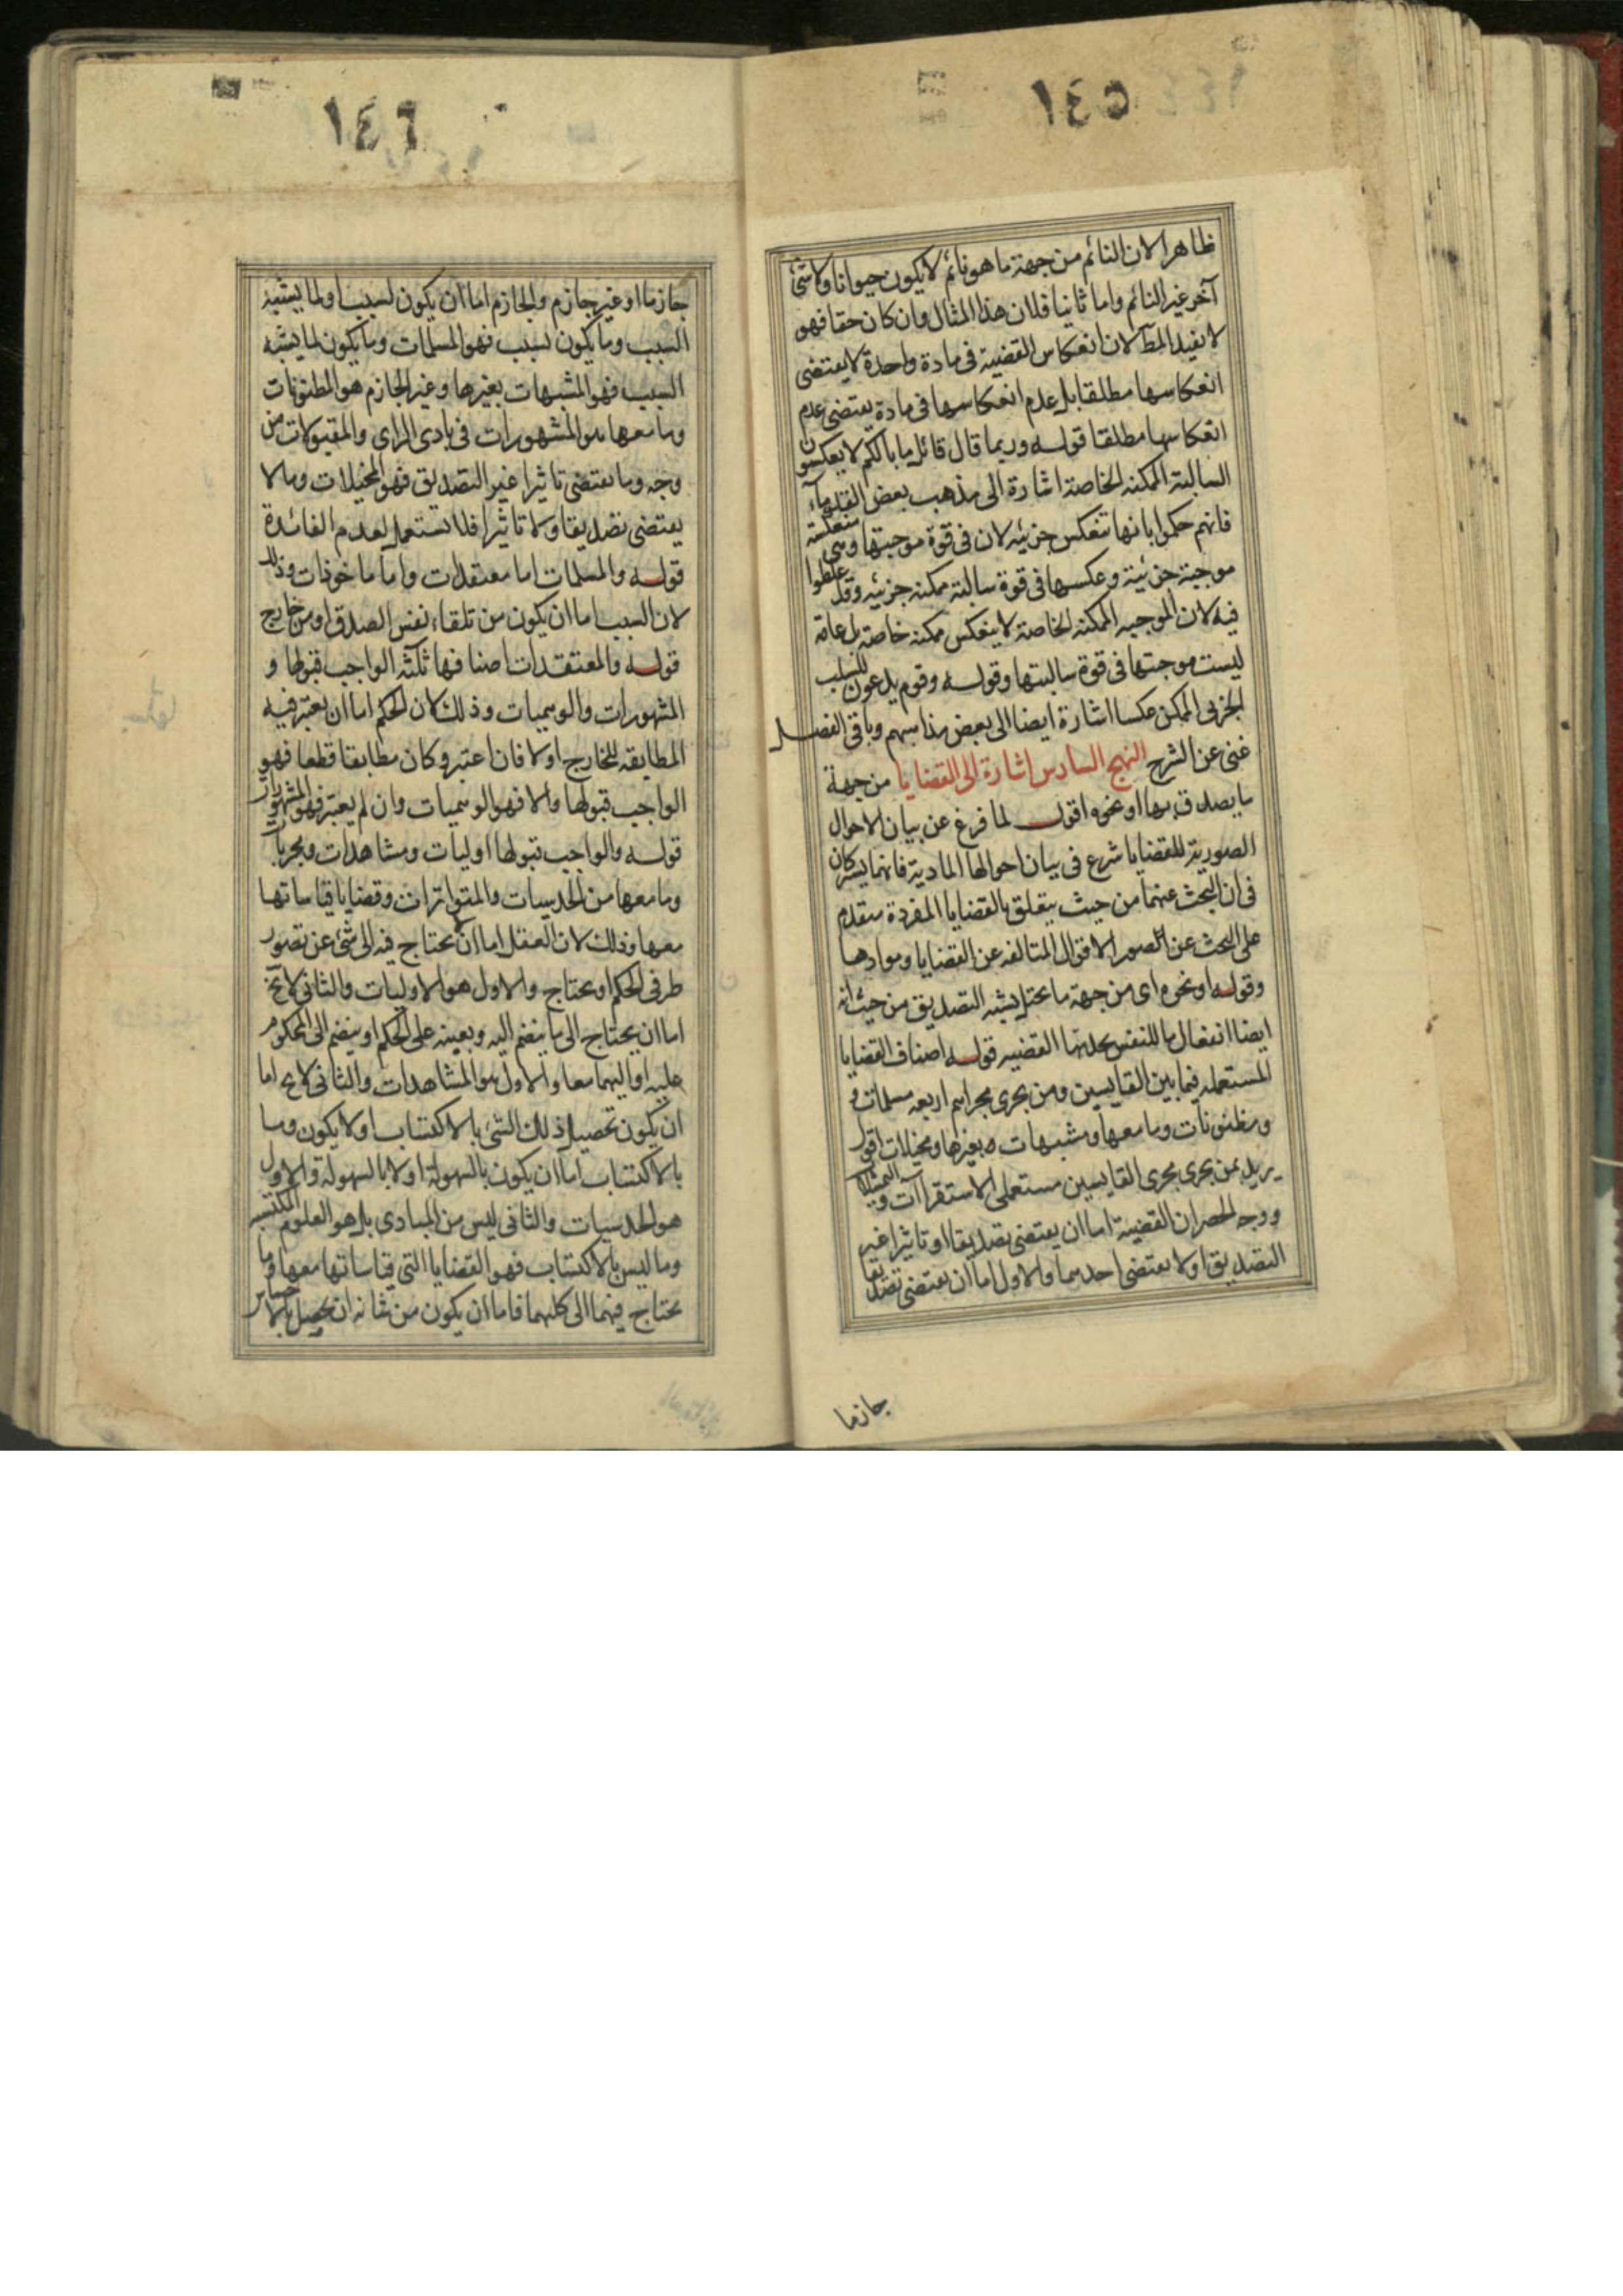 ١٤٥
ظاهرا لان النائم من جهة ما هو نائم لا يكون حيوانا ولا شئ
آخر غير النائم واما ثانيا فلان هذا المثال وان كان حقا فهو
لا يفيد المط لان انعكاس القضية فى مادة واحدة لا يقتضى
انعكاسها مطلقا بل عدم انعكاسها فى مادة يقتضى عدم
انعكاسها مطلقا قوله وربما قال قائل ما بالكم لا يعكسون
السالبة الممكنه الخاصة اشارة الى مذهب بعض القدماء
فانهم حكموا بانها تنعكس جزئيه لان فى قوة موجبتها وهى منعكسة
موجبة جزئية وعكسها فى قوة سالبة ممكنه جزئيه وقد غلطوا
فيه لان الموجبه الممكنه الخاصة لا ينعكس ممكنه خاصة بل عامة
ليست موجبتها فى قوة سالبتها وقوله وقوم يدعون للسلب
الجزئى الممكن عكسا اشارة ايضا الى بعض مذاهبهم وباقى الفصل
غنى عن الشرح النهج السادس اشارة الى القضايا من جهة
ما يصدق بها او نحوه اقول لما فرغ عن بيان الاحوال
الصورية للقضايا شرع فى بيان احوالها المادية فانهما يشتركان
فى ان البحث عنهما من حيث يتعلق بالقضايا المفردة متقدم
على البحث عن الصور الاقوال المتالفه عن القضايا وموادها
وقوله او نحوه اى من جهة ما يحتل يشبه التصديق من حيث انه
ايضا انفعال ما للنفس يحدثها القضيه قوله اصناف القضايا
المستعمله فيما بين القايسين ومن يجرى مجراهم اربعه مسلمات و
ومظنونات وما معها ومشبهات ه بغيرها ومخيلات اقول
يريد بمن يجرى مجرى القايسين مستعملى الاستقراآت والتمثيلات
ووجه الحصر ان القضية اما ان يقتضى تصديقا او تاثيرا غير
التصديق او لا يقتضى احدهما والاول اما ان يقتضى تصديقا
جازما
١٤٦
جازما او غير جازم والجازم اما ان يكون لسبب او لما يشبه
السبب وما يكون لسبب فهو المسلمات وما يكون لما يشبه
السبب فهو المشبهات بغيرها وغير الجازم هو المظنونات
وما معها هو المشهورات فى بادى الراى والمقبولات من
وجه وما يقتضى تاثيرا غير التصديق فهو المخيلات وما لا
يقتضى تصديقا ولا تاثيرا فلا تستعمل لعدم الفائدة
قوله والمسلمات اما معتقدات واما ماخوذات وذلك
لان السبب اما ان يكون من تلقاء نفس الصدق او من خارج
قوله والمعتقدات اصنافها ثلثه الواجب قبولها و
المشهورات والوهميات وذلك لان الحكم اما ان يعتبر فيه
المطابقه للخارج او لا فان اعتبر وكان مطابقا قطعا فهو
الواجب قبولها والا فهو الوهميات وان لم يعتبر فهو المشهورات
قوله والواجب قبولها اوليات ومشاهدات ومجربات
وما معها من الحدسيات والمتواترات وقضايا قياساتها
معها وذلك لان العقل اما ان يحتاج فيه الى شئ عن تصور
طرفى الحكم او يحتاج والاول هو الاوليات والثانى لا يخ
اما ان يحتاج الى ما ينضم اليه ويعينه على الحكم او ينضم الى المحكوم
عليه او اليهما معا والاول هو المشاهدات والثانى لا يخ اما
ان يكون تحصيل ذلك الشئ بالاكتساب او لا يكون وما
بالاكتساب اما ان يكون بالسهولة او لا بالسهولة والاول
هو الحدسيات والثانى ليس من المبادى بل هو العلوم المكتسبه
وما ليس بالاكتساب فهو القضايا التى قياساتها معها وما
يحتاج فيهما الى كليهما فاما ان يكون من شانه ان يحصل بالاخبار